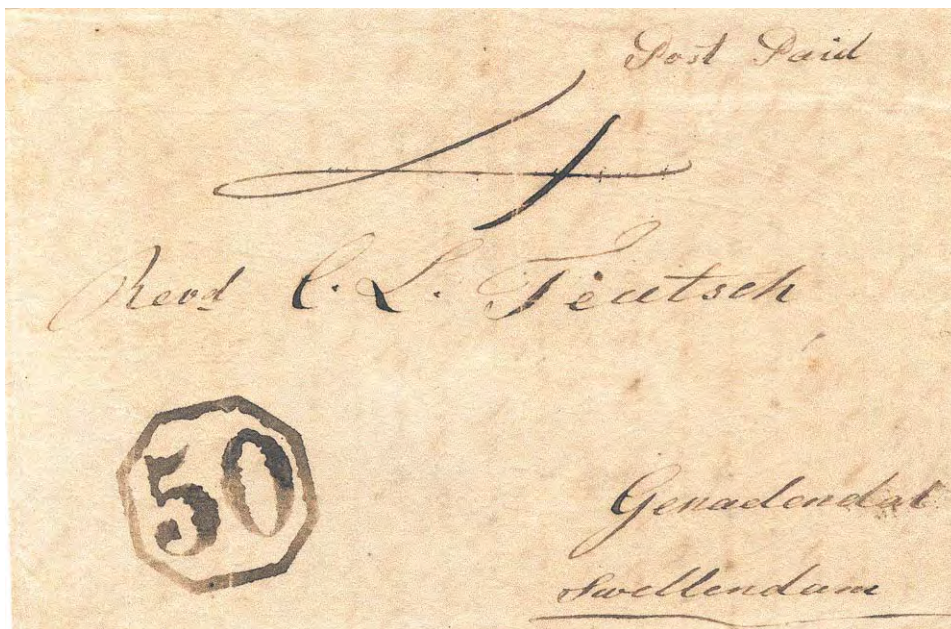 Post Paid
4
Revd C. L. Teutsch
50
Genadendal
Swellendam